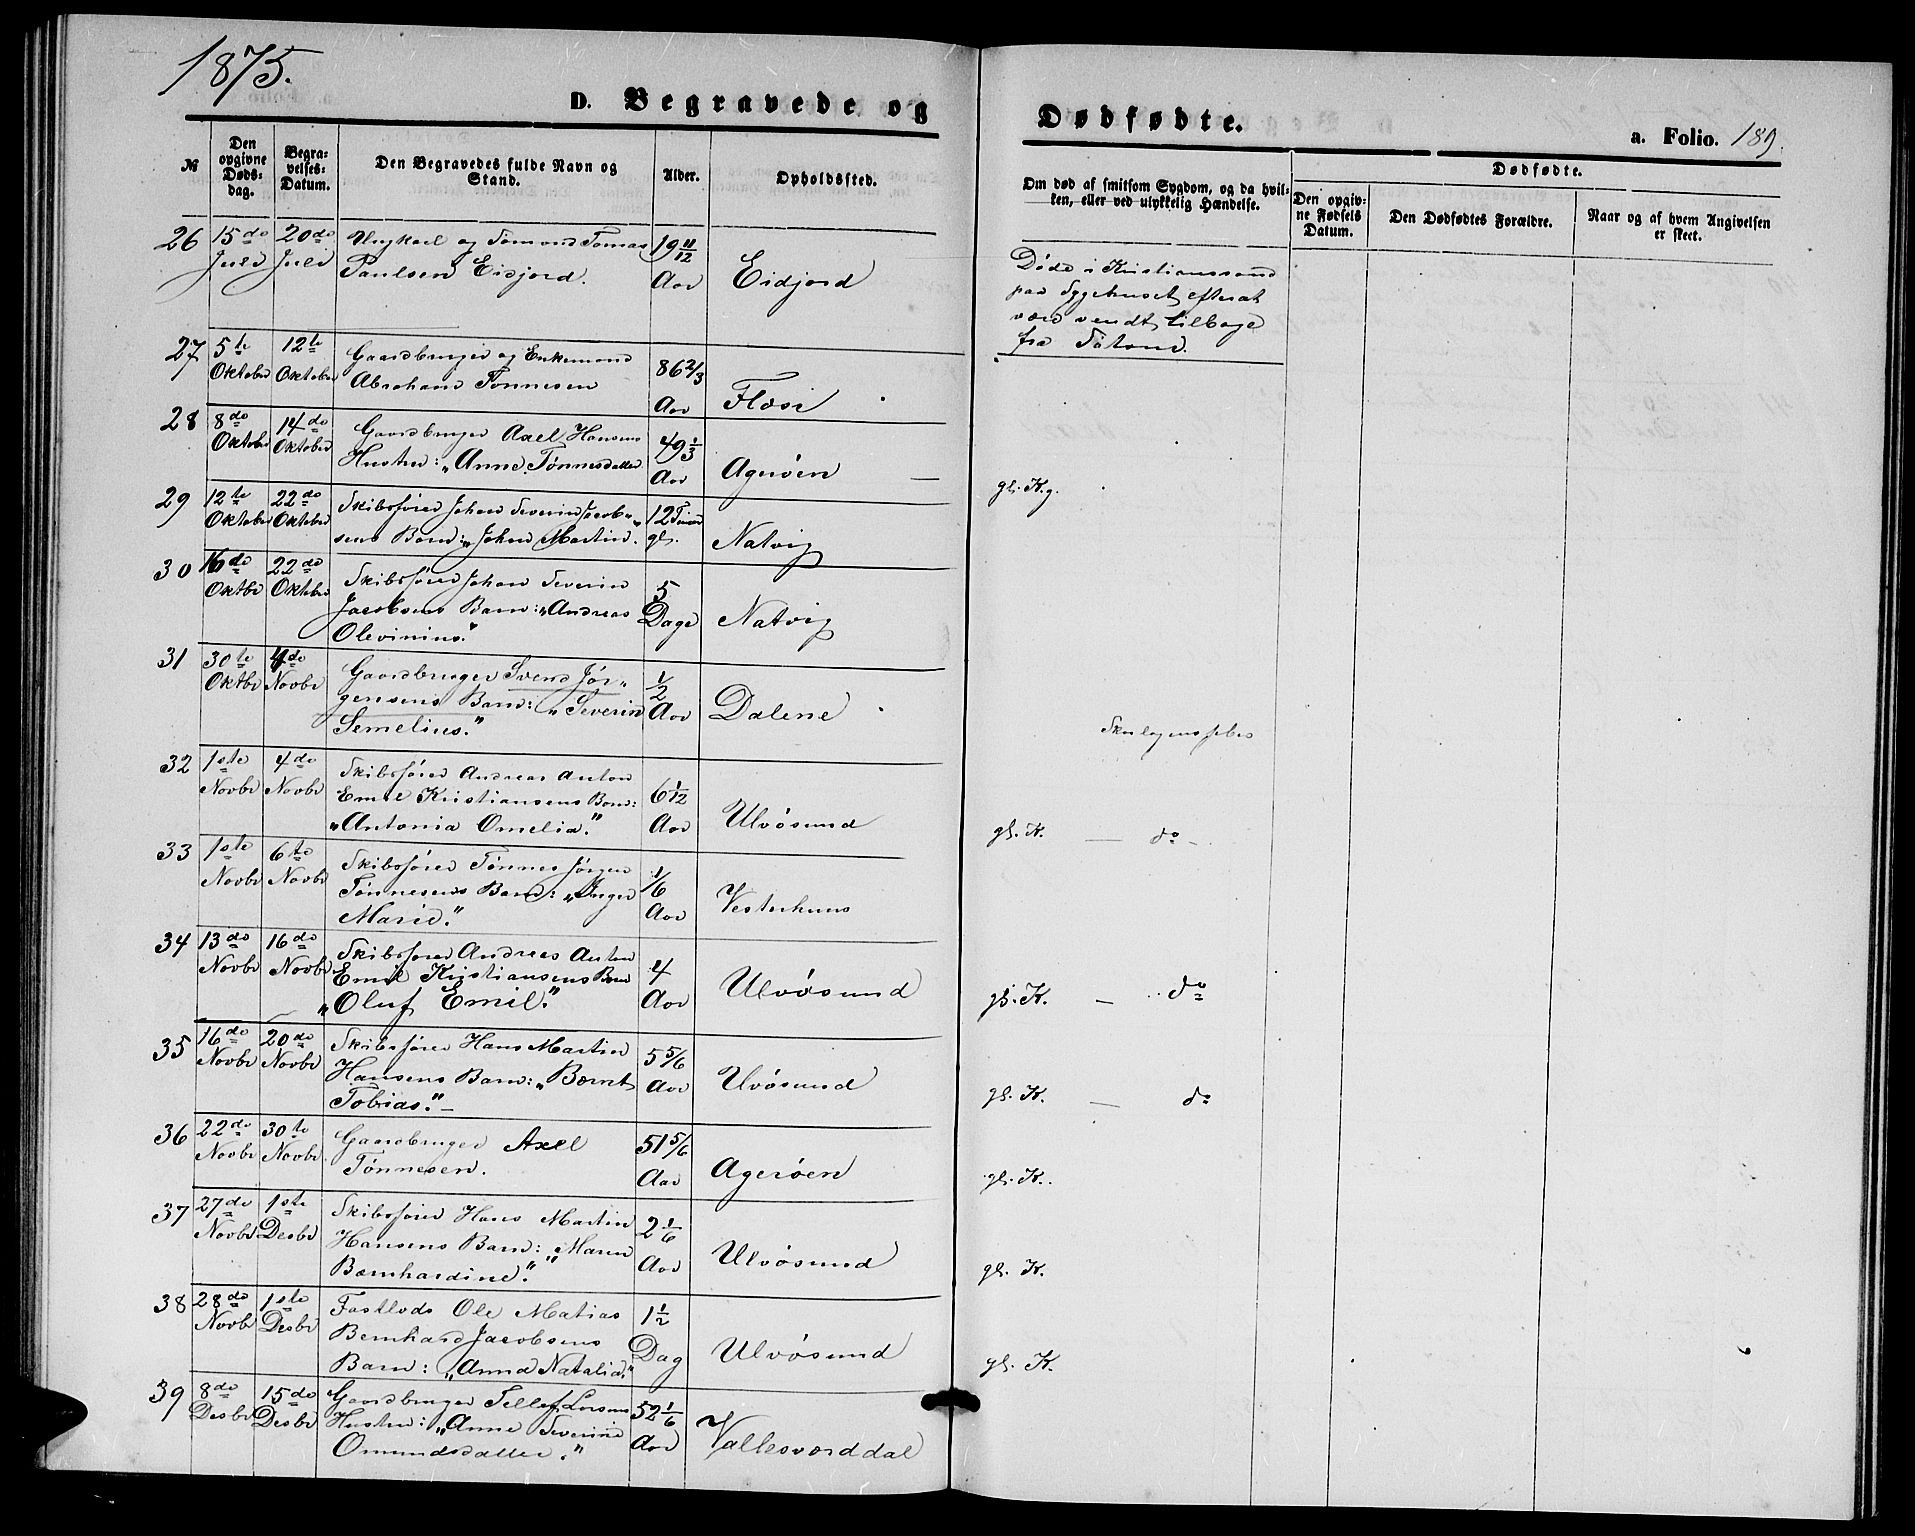 1875.
D. Begravede og
Dødfødte.
a. Folio. 189.
№
Den opgivne Døds-dag.
Begra-velses-Datum.
Den Begravedes fulde Navn og Stand.
Alder.
Opholdssted.
Om død af smitsom Sygdom, og da hvil-
ken, eller ved ulykkelig Hændelse.
Dødfødte.
Den opgiv-ne Fødsels Datum.
Den Dødfødtes Forældre.
Naar og af hvem Angivelsen er skeet.
26 15de Juli 20de Juli Ungkarl og Sømand Tomas
Paulsen Eidjord. 19 11/12 Aar Eidjord
Døde i Kristianssand
paa Sygehuset efterat
være vendt tilbage
fra Søtond.
27 5te Oktober 12te Oktober Gaardbruger og Enkemand
Abraham Tønnesen 86 2/3 Aar Flosi
28 8de Oktober 14de Oktober Gaardbruger Axel Hansens
Hustru: "Anne Tønnesdatter 49 1/3 Aar Agerøen
gl. K.g.
29 12te Oktober 22de Oktober Skibsfører Johan Severin Jacob-
sens Barn: "Johan Martin. 12 Timer gl. Natvig
30 16de Oktbr 22de Oktober Skibsfører Johan Severin
Jacobsens Barn: "Andreas
Olevinius." 5 Dage Natvig
31 30te Oktbr 4de Novbr Gaardbruger Svend Jør-
gensens Barn: "Severin
Semelius." 1/2 Aar Dalene
Skarlagensfeber
32 1ste Novbr 4de Novbr Skibsfører Andreas Anton
Emil Kristiansens Barn:
"Antonia Omelia." 6 1/12 Aar Ulvøsund
gl. K. — do -
33 1ste Novbr 6te Novbr Skibsfører Tønnes Jørgen
Tønnesens Barn: "Inger
Marie." 1/6 Aar Vesterhuus
34 13de Novbr 16de Novbr Skibsfører Andreas Anton
Emil Kristiansens Barn
"Oluf Emil." 4 Aar Ulvøsund
gl. K. — do
35 16de Novbr 20de Novbr Skibsfører Hans Martin
Hansens Barn: "Bernt
Tobias." - 5 5/6 Aar Ulvøsund
gl. K. — do
36 22de Novbr 30te Novbr Gaardbruger Axel
Tønnesen. 51 5/6 Aar Agerøen
gl. K.
37 27de Novbr 1ste Desbr Skibsfører Hans Martin
Hansens Barn: "Maren
Bernhardine." 2 1/6 Aar Ulvøsund
gl. K.
38 28de Novbr 1ste Desbr Fastlods Ole Matias
Bernhard Jacobsens
Barn: "Anna Natalia." 1 1/2 Dag Ulvøsund
gl. K.
39 8de Desbr 15de Desbr Gaardbruger Tellef Larsens
Hustru: "Anne Severine
Omundsdatter." 52 1/6 Aar Vallesværddal